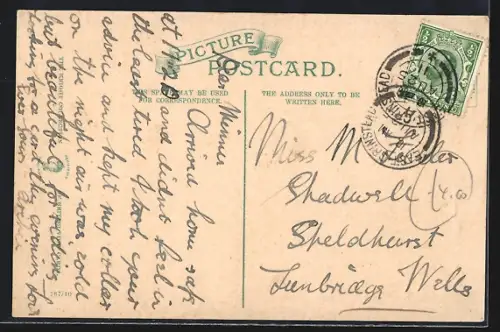 PICTURE
POSTCARD.
THIS SPACE MAY BE USED
FOR CORRESPONDENCE.
THE ADDRESS ONLY TO BE
WRITTEN HERE.
Dear Minnie
Arrived home safe
at and didn't feel in
the least tired I took your
advice and kept my collar
on the night air was cold
but beautiful for riding
Looking for a card this evening
Miss M
Shadwell
Speldhurst
Tunbridge Wells
4.60
EAST GRINSTEAD
187710